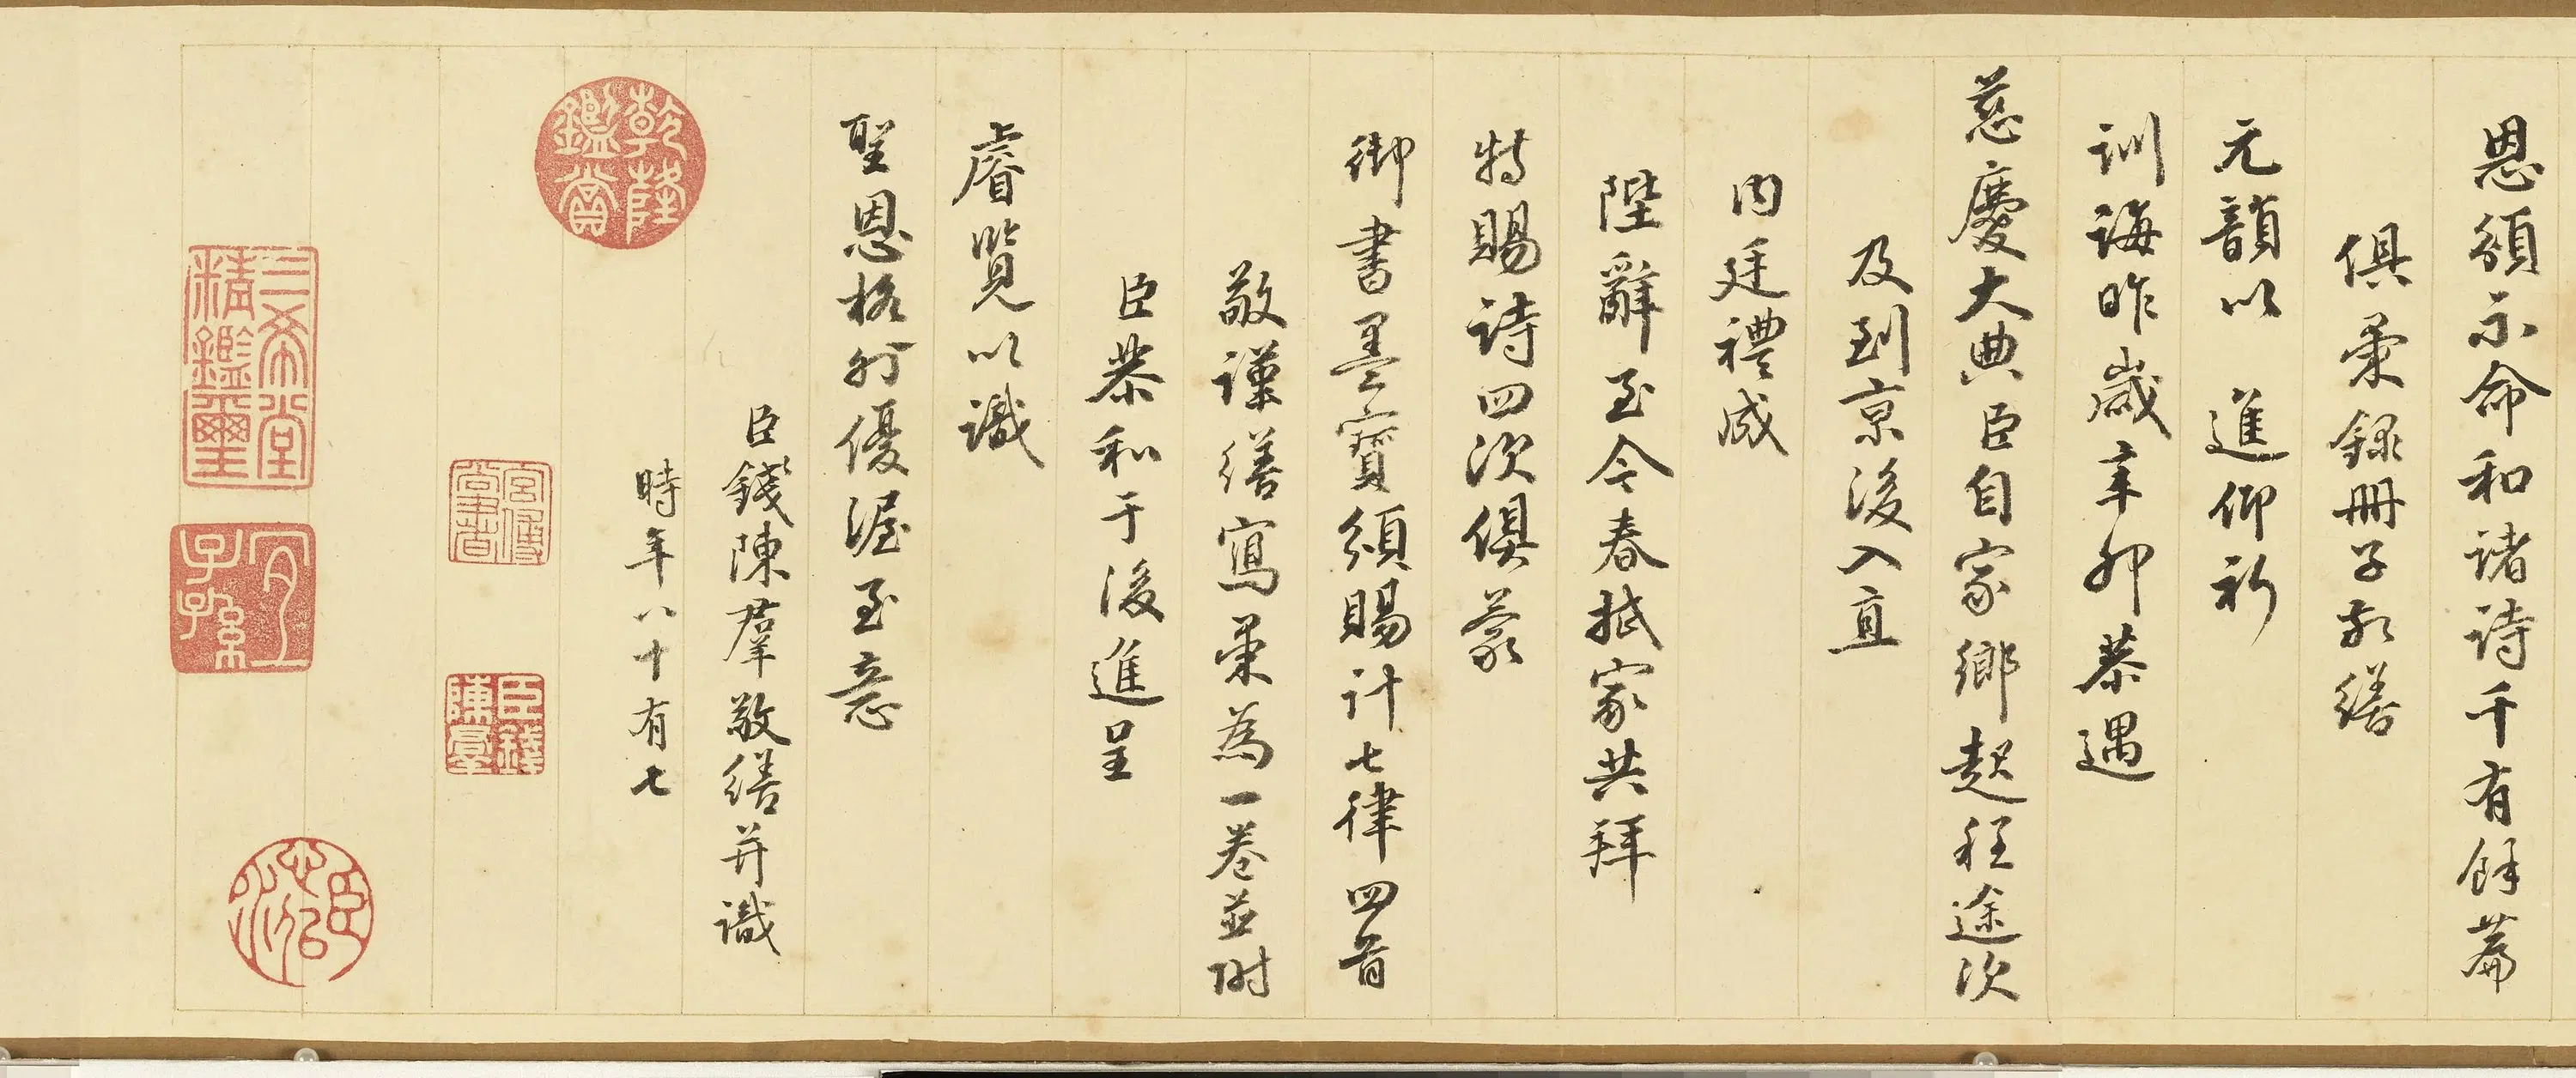 恩頒示命和諸詩千有餘篇
俱彙錄冊子敬繕
元韻以 進仰祈
訓誨昨歲辛卯恭遇
慈慶大典臣自家鄉起程途次
及到京後入直
內廷禮成
陛辭至今春抵家共拜
特賜詩四次俱蒙
御書墨寶頒賜計七律四首
敬謹繕寫彙為一卷並附
臣恭和于後進呈
睿覽以識
聖恩格外優渥至意
臣錢陳羣敬繕并識
時年八十有七
乾隆鑑賞
宮傅尚書
臣錢陳羣
三希堂精鑑璽
宜子孫